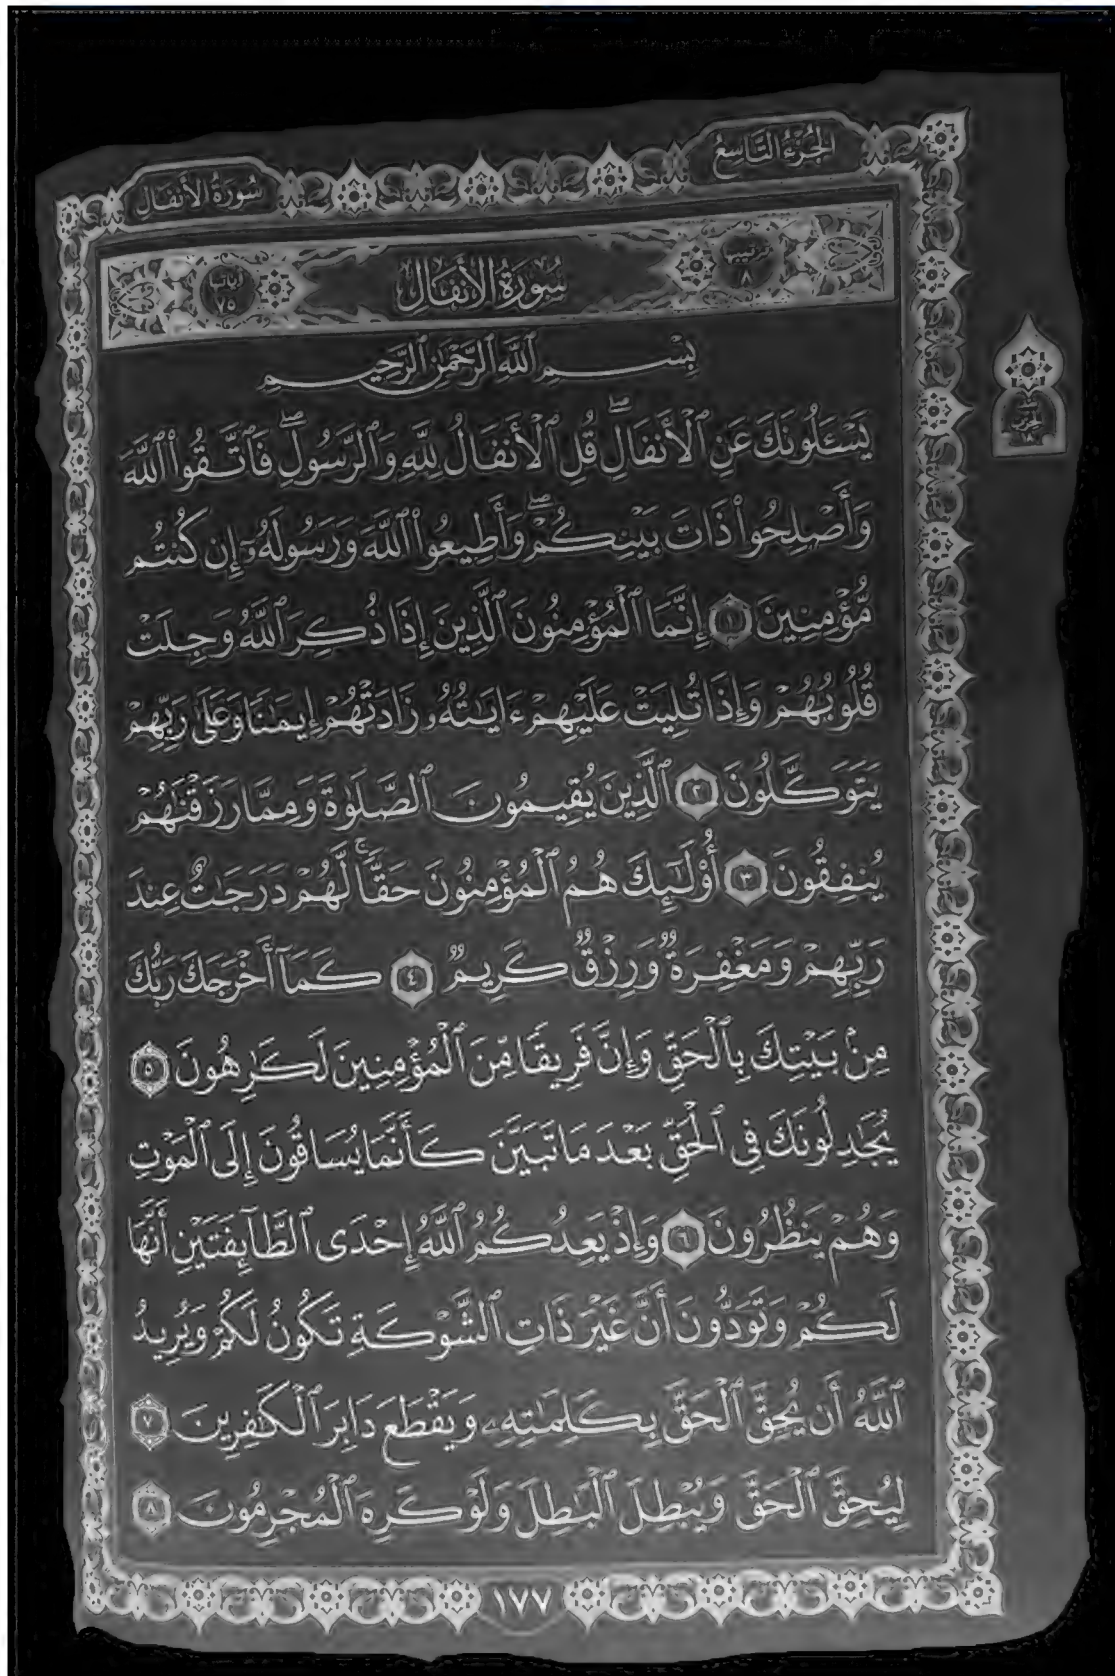 الجُزْءُ التَّاسِعُ
سُورَةُ الأَنفَال
ترتيبها ٨
سُورَةُ الأَنفَالِ
آياتها ٧٥
بِسْمِ ٱللَّهِ ٱلرَّحْمَٰنِ ٱلرَّحِيمِ
يَسْـَٔلُونَكَ عَنِ ٱلْأَنفَالِۖ قُلِ ٱلْأَنفَالُ لِلَّهِ وَٱلرَّسُولِۖ فَٱتَّقُوا۟ ٱللَّهَ
وَأَصْلِحُوا۟ ذَاتَ بَيْنِكُمْۖ وَأَطِيعُوا۟ ٱللَّهَ وَرَسُولَهُۥٓ إِن كُنتُم
مُّؤْمِنِينَ ١ إِنَّمَا ٱلْمُؤْمِنُونَ ٱلَّذِينَ إِذَا ذُكِرَ ٱللَّهُ وَجِلَتْ
قُلُوبُهُمْ وَإِذَا تُلِيَتْ عَلَيْهِمْ ءَايَٰتُهُۥ زَادَتْهُمْ إِيمَٰنًا وَعَلَىٰ رَبِّهِمْ
يَتَوَكَّلُونَ ٢ ٱلَّذِينَ يُقِيمُونَ ٱلصَّلَوٰةَ وَمِمَّا رَزَقْنَٰهُمْ
يُنفِقُونَ ٣ أُو۟لَٰٓئِكَ هُمُ ٱلْمُؤْمِنُونَ حَقًّاۚ لَّهُمْ دَرَجَٰتٌ عِندَ
رَبِّهِمْ وَمَغْفِرَةٌ وَرِزْقٌ كَرِيمٌ ٤ كَمَآ أَخْرَجَكَ رَبُّكَ
مِنۢ بَيْتِكَ بِٱلْحَقِّ وَإِنَّ فَرِيقًا مِّنَ ٱلْمُؤْمِنِينَ لَكَٰرِهُونَ ٥
يُجَٰدِلُونَكَ فِى ٱلْحَقِّ بَعْدَ مَا تَبَيَّنَ كَأَنَّمَا يُسَاقُونَ إِلَى ٱلْمَوْتِ
وَهُمْ يَنظُرُونَ ٦ وَإِذْ يَعِدُكُمُ ٱللَّهُ إِحْدَى ٱلطَّآئِفَتَيْنِ أَنَّهَا
لَكُمْ وَتَوَدُّونَ أَنَّ غَيْرَ ذَاتِ ٱلشَّوْكَةِ تَكُونُ لَكُمْ وَيُرِيدُ
ٱللَّهُ أَن يُحِقَّ ٱلْحَقَّ بِكَلِمَٰتِهِۦ وَيَقْطَعَ دَابِرَ ٱلْكَٰفِرِينَ ٧
لِيُحِقَّ ٱلْحَقَّ وَيُبْطِلَ ٱلْبَٰطِلَ وَلَوْ كَرِهَ ٱلْمُجْرِمُونَ ٨
١٧٧